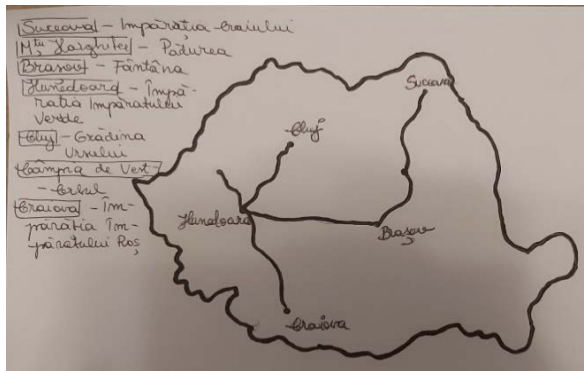 Suceava – Împărăția Craiului
Mții Harghitei – Pădurea
Brașov – Fântâna
Hunedoara – Împă-
rația Împăratului
Verde
Cluj – Grădina
Ursului
Câmpia de Vest
– Cerbul
Craiova – Îm-
părăția Îm-
păratului Roș
Suceava
Cluj
Hunedoara
Brașov
Craiova